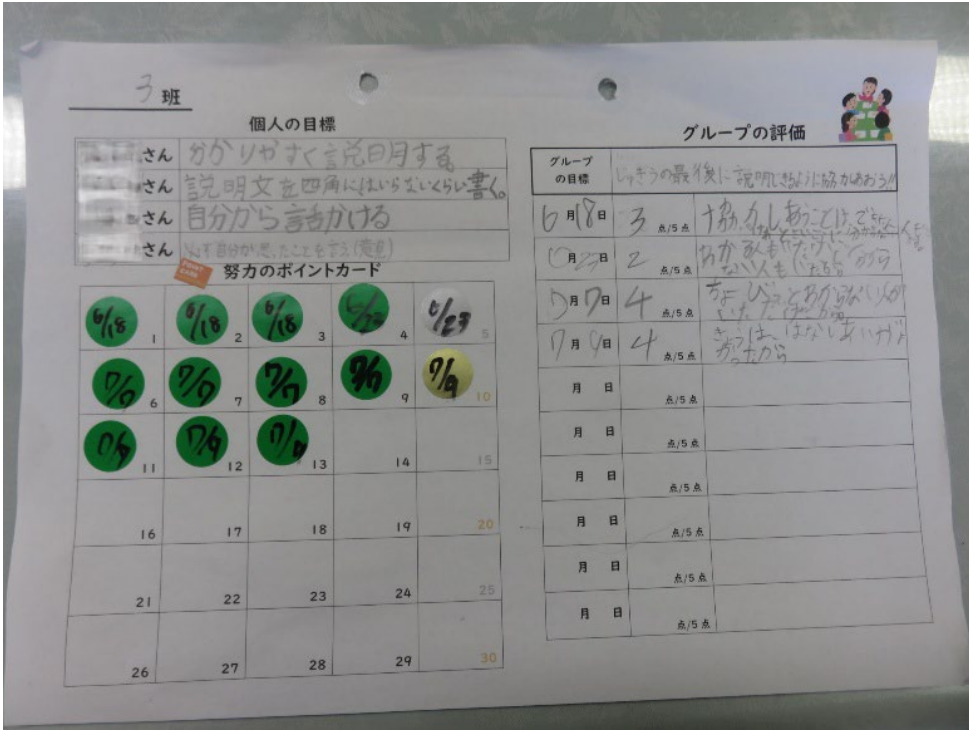 3班
個人の目標
さん わかりやすく説明する
さん 説明文を四角にはいらないくらい書く。
さん 自分から話かける
さん 自分が思ったことを言う(意見)
POINT CARD
努力のポイントカード
6/18 1 6/18 2 6/18 3 4 6/23 5
7/7 6 7/7 7 7/7 8 7/7 9 7/9 10
7/9 11 7/9 12 7/9 13 14 15
16 17 18 19 20
21 22 23 24 25
26 27 28 29 30
グループの評価
グループの目標 じゅぎょうの最後に説明できるように協力しあおう!!
6月18日 3点/5点 協力しあうことは、できた
月23日 2点/5点
7月7日 4点/5点 ちょびっとわからない人が
7月9日 4点/5点 きょうは、はなしあいがよ
かったから
月 日 点/5点
月 日 点/5点
月 日 点/5点
月 日 点/5点
月 日 点/5点
月 日 点/5点